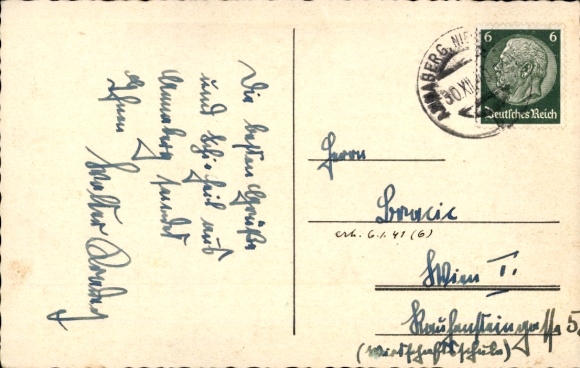 Die besten Grüße
und Schi Heil aus
Annaberg sendet
Ihnen Walter
ANNABERG, NIE
30.XII.
6 6
Deutsches Reich
Herrn
Bracic
erh. 6.1.41 (6)
Wien I.
Rauhensteingasse 5.
(Wirtschaftsschule)